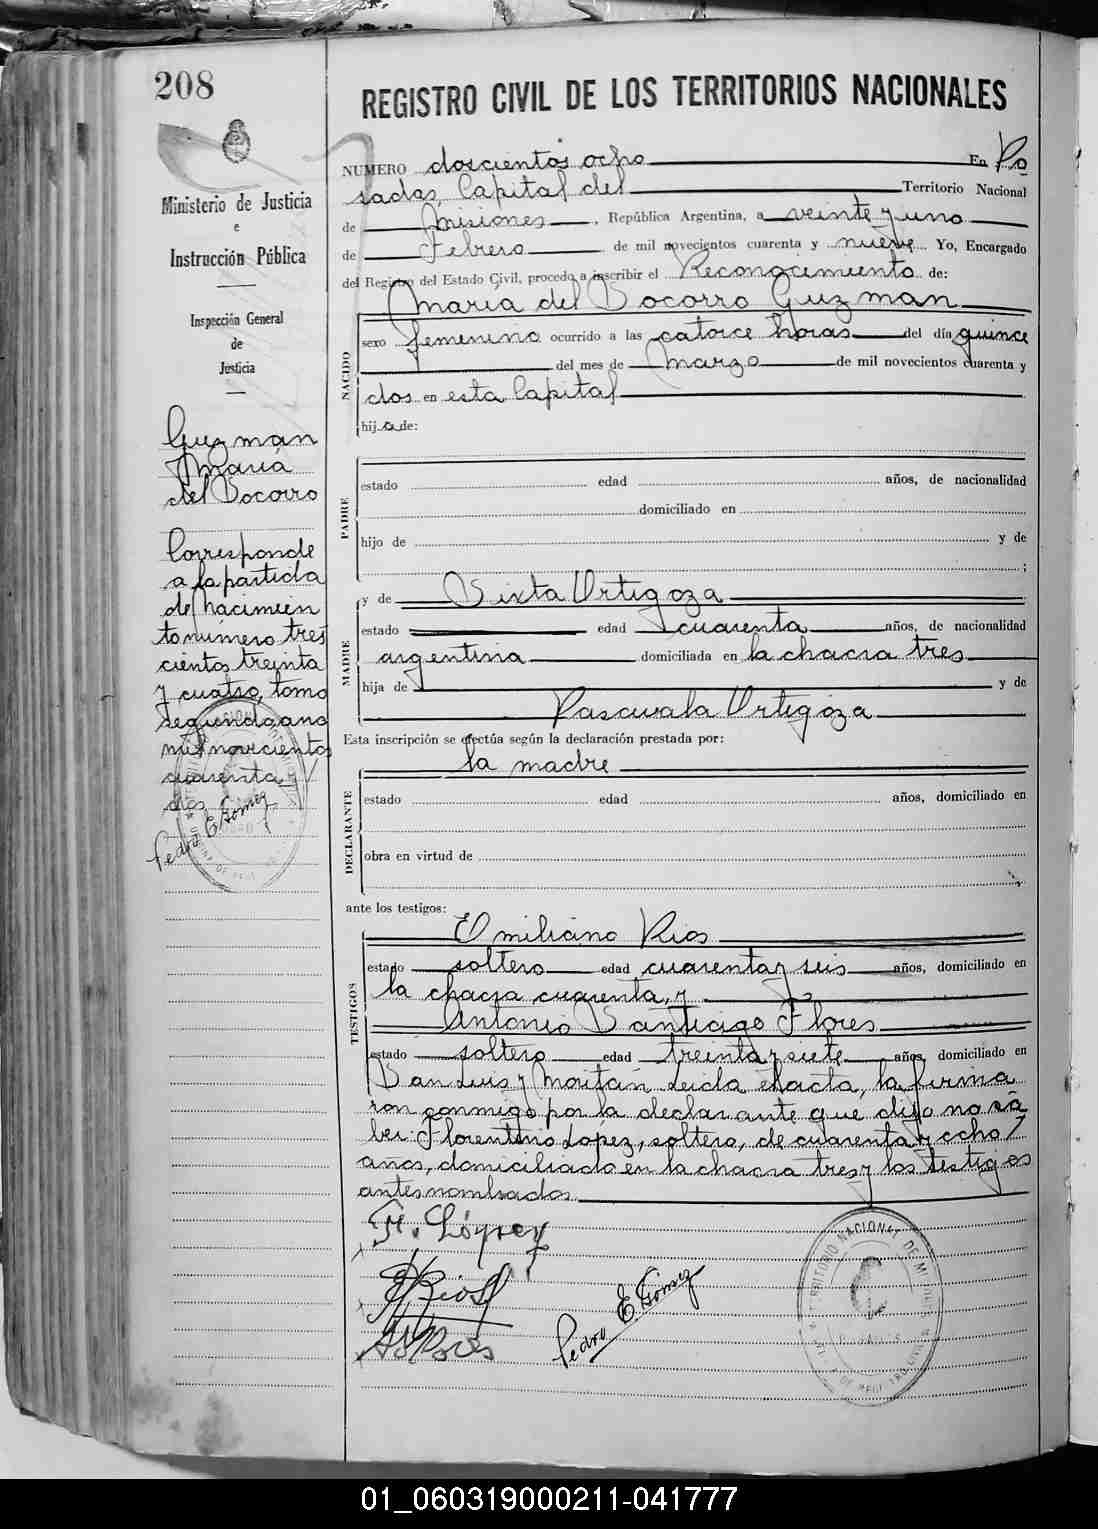 208
REGISTRO CIVIL DE LOS TERRITORIOS NACIONALES
Ministerio de Justicia
e
Instrucción Pública
Inspección General
de
Justicia
Guzman
Maria
del Socorro
Corresponde
a la partida
de nacimien
to número tres
cientos treinta
y cuatro, tomo
segundo año
mil novecientos
cuarenta y
dos
Pedro E Gómez
NUMERO doscientos ocho En Po
sadas, Capital del Territorio Nacional
de Misiones, República Argentina, a veinte y uno
de Febrero de mil novecientos cuarenta y nueve Yo, Encargado
del Registro del Estado Civil, procedo a inscribir el Reconocimiento de:
Maria del Socorro Guzman
NACIDO
sexo femenino ocurrido a las catorce horas del día quince
del mes de Marzo de mil novecientos cuarenta y
dos en esta Capital
hija de:
PADRE
estado edad años, de nacionalidad
domiciliado en
hijo de y de
;
MADRE
y de Sixta Ortigoza
estado edad cuarenta años, de nacionalidad
argentina domiciliada en la chacra tres
hija de y de
Pascuala Ortigoza
Esta inscripción se efectúa según la declaración prestada por:
la madre
DECLARANTE
estado edad años, domiciliado en
obra en virtud de
ante los testigos:
TESTIGOS
Emiliano Rios
estado soltero edad cuarenta y seis años, domiciliado en
la chacra cuarenta, y
Antonio Santiago Flores
estado soltero edad treinta y siete años, domiciliado en
San Luis y Moritán Leida el acta, la firma
ron conmigo por la declarante que dijo no sa
ber: Florentino Lopez, soltero, de cuarenta y ocho
años, domiciliado en la chacra tres y los testigos
antes nombrados
F. López
Rios
Pedro E. Gómez
TERRITORIO NACIONAL DE MISIONES
POSADAS
DE REGISTRO CIVIL
01_060319000211-041777